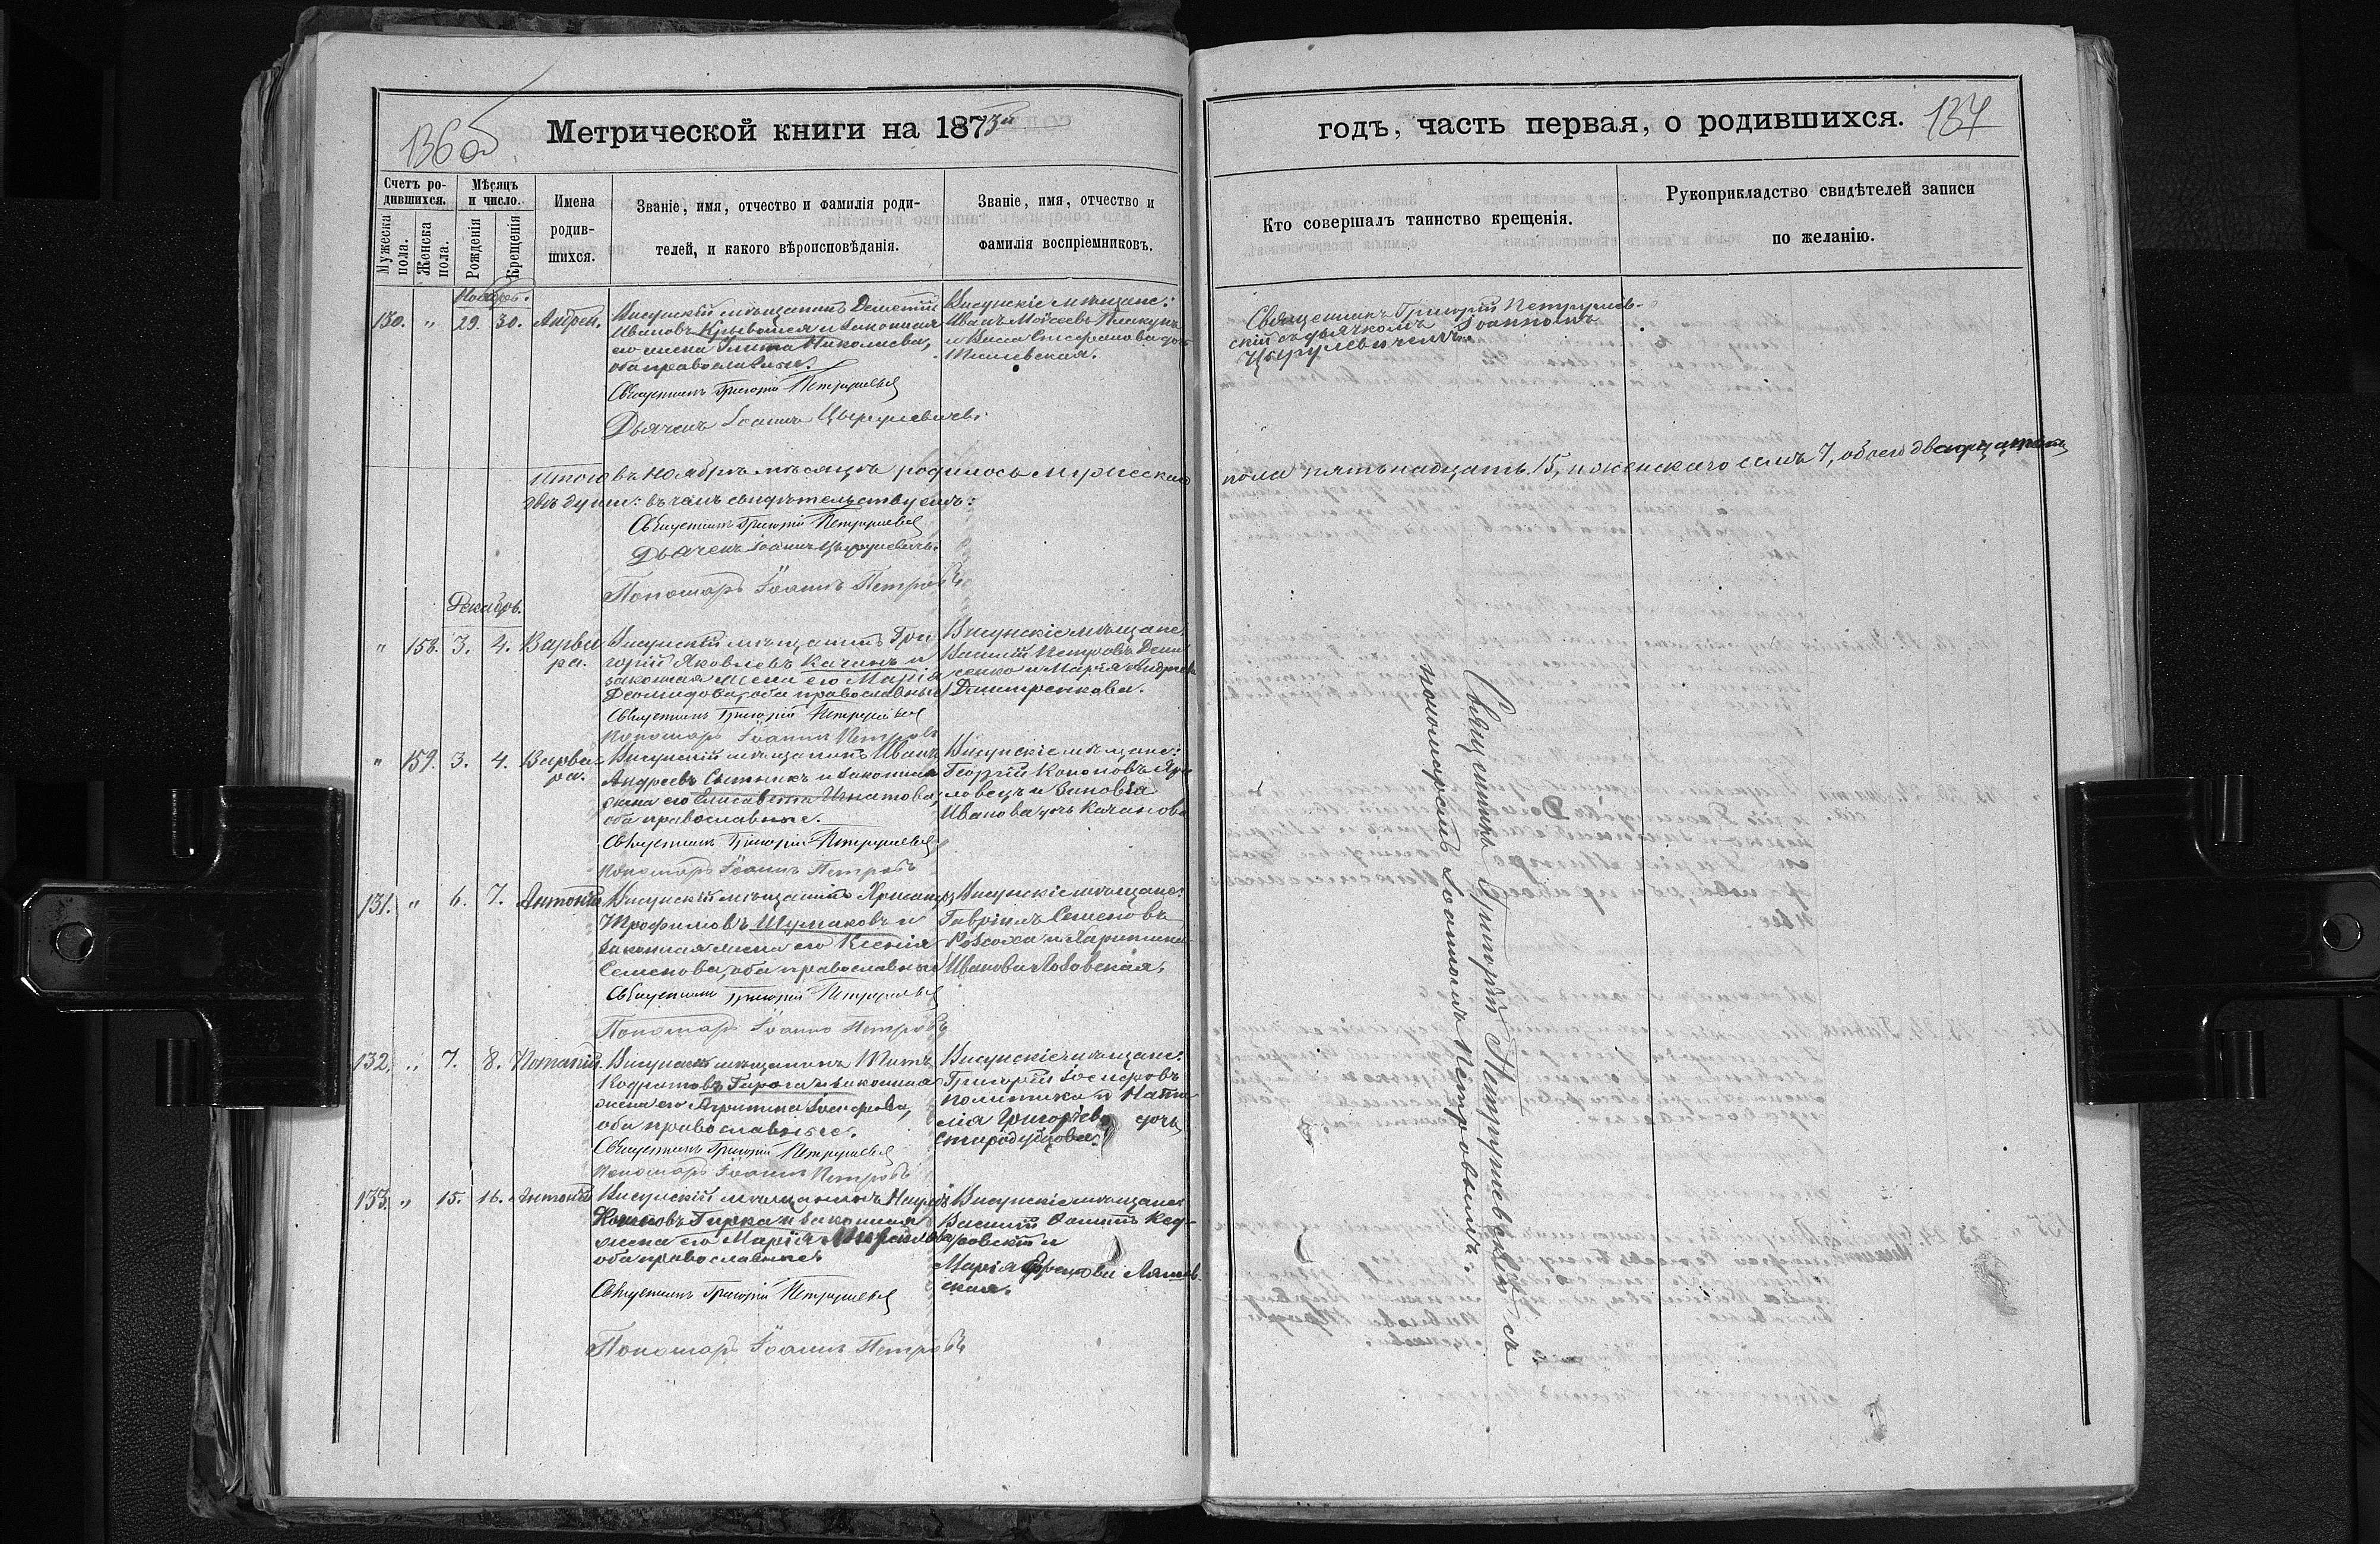 136 об
Метрической книги на 1873й
Счетъ ро-
дившихся.
Мѣсяцъ
и число.
Мужеска
пола.
Женска
пола.
Рожденія
Крещенія
Имена
родив-
шихся.
Званіе, имя, отчество и фамилія роди-
телей, и какого вѣроисповѣданія.
Званіе, имя, отчество и
фамилія воспріемниковъ.
Ноябрь.
130. " 29. 30. Андрей.
Висунскій мѣщанинъ Деметій
Ивановъ Крывошея и законная
его жена Улита Николаева,
оба православные.
Священникъ Григорій Петрушевскій
Дьячекъ Іоаннъ Цырулевичъ.
Висунскіе мѣщане:
Иванъ Мойсеевъ Плакунъ
и Васса Стефанова дочь
Итого въ Ноябрѣ мѣсяцѣ родилось мужескаго
двѣ души: въ чемъ свидѣтельствуемъ:
Священникъ Григорій Петрушевскій
Дьячекъ Іоаннъ Цырулевичъ.
Пономарь Іоаннъ Петровъ
Декабрь.
" 158. 3. 4. Варва
ра.
Висунскій мѣщанинъ Гри
горій Яковлевъ Качанъ и
законная жена его Марія
Деомидова, оба православные
Священникъ Григорій Петрушевскій
Пономарь Іоаннъ Петровъ
Висунскіе мѣщане:
Василій Петровъ Дени
сенко и Марія Андреева
Дмитренкова.
" 159. 3. 4. Варва
ра.
Висунскій мѣщанинъ Иванъ
Андреевъ Сытникъ и законная
жена его Елисавета Игнатова,
оба православные.
Священникъ Григорій Петрушевскій
Пономарь Іоаннъ Петровъ
Висунскіе мѣщане:
Георгій Кононовъ Яро
ловецъ и Зиновія
Иванова дочь Качанова
131. " 6. 7. Антоній
Висунскій мѣщанинъ
Трофимовъ Шумаковъ и
законная жена его Ксенія
Семенова, оба православные
Священникъ Григорій Петрушевскій
Пономарь Іоаннъ Петровъ
Висунскіе мѣщане:
Гавріилъ Семеновъ
и Харитина
Иванова Лобовская.
132. " 7. 8. Потапій.
Висунскій мѣщанинъ Титъ
Кодратовъ Гирога и законная
жена его Агрипина Іосифова,
оба православные.
Священникъ Григорій Петрушевскій
Пономарь Іоаннъ Петровъ
Висунскіе мѣщане:
Григорій Іосифовъ
Політика и Ната
лія Григорьева дочь
Стародубцова.
133. " 15. 16. Антоній
Висунскій мѣщанинъ
Гирка и законная
жена его Марія
оба православные.
Священникъ Григорій Петрушевскій
Пономарь Іоаннъ Петровъ
Висунскіе мѣщане:
Василій Фоминъ Кед-
ровскій и
Марія
ская.
годъ, часть первая, о родившихся. 137
Кто совершалъ таинство крещенія.
Рукоприкладство свидѣтелей записи
по желанію.
Священникъ Григорій Петрушев-
скій съ дьячкомъ Іоанномъ
Цырулевичемъ.
пола пятьнадцать 15, и женскаго семь 7, обоего двадцать
Священникъ Григорій Петрушевскій съ
пономаремъ Іоанномъ Петровымъ.